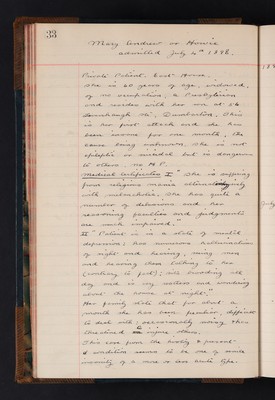 33
Mary Andrew or Howie
admitted July 4th 1898.
Private Patient. East House.
She is 60 years of age, widowed,
of no occupation, a Presbyterian
and resides with her son at 54
St, Dumbarton. This
is her first attack and she has
been insane for one month, the
cause being unknown. She is not
epileptic or suicidal but is dangerous
to others. no H.P.
Medical Certificates I "She is suffering
from religious mania alternating
with melancholia. She has quite a
number of delusions and her
reasoning faculties and judgments
are much impaired."
II Patient is in a state of mental
depression; has numerous hallucinations
of sight and hearing, seeing men
and hearing them talking to her
; sits brooding all
day and is very restless and wandering
about the house at night."
Her family state that for about a
month she has been peculiar, difficult
to deal with; occasionally noisy & has
threatened to injure others.
This case from the history & present
condition seems to be one of senile
insanity of a more or less acute type.
July